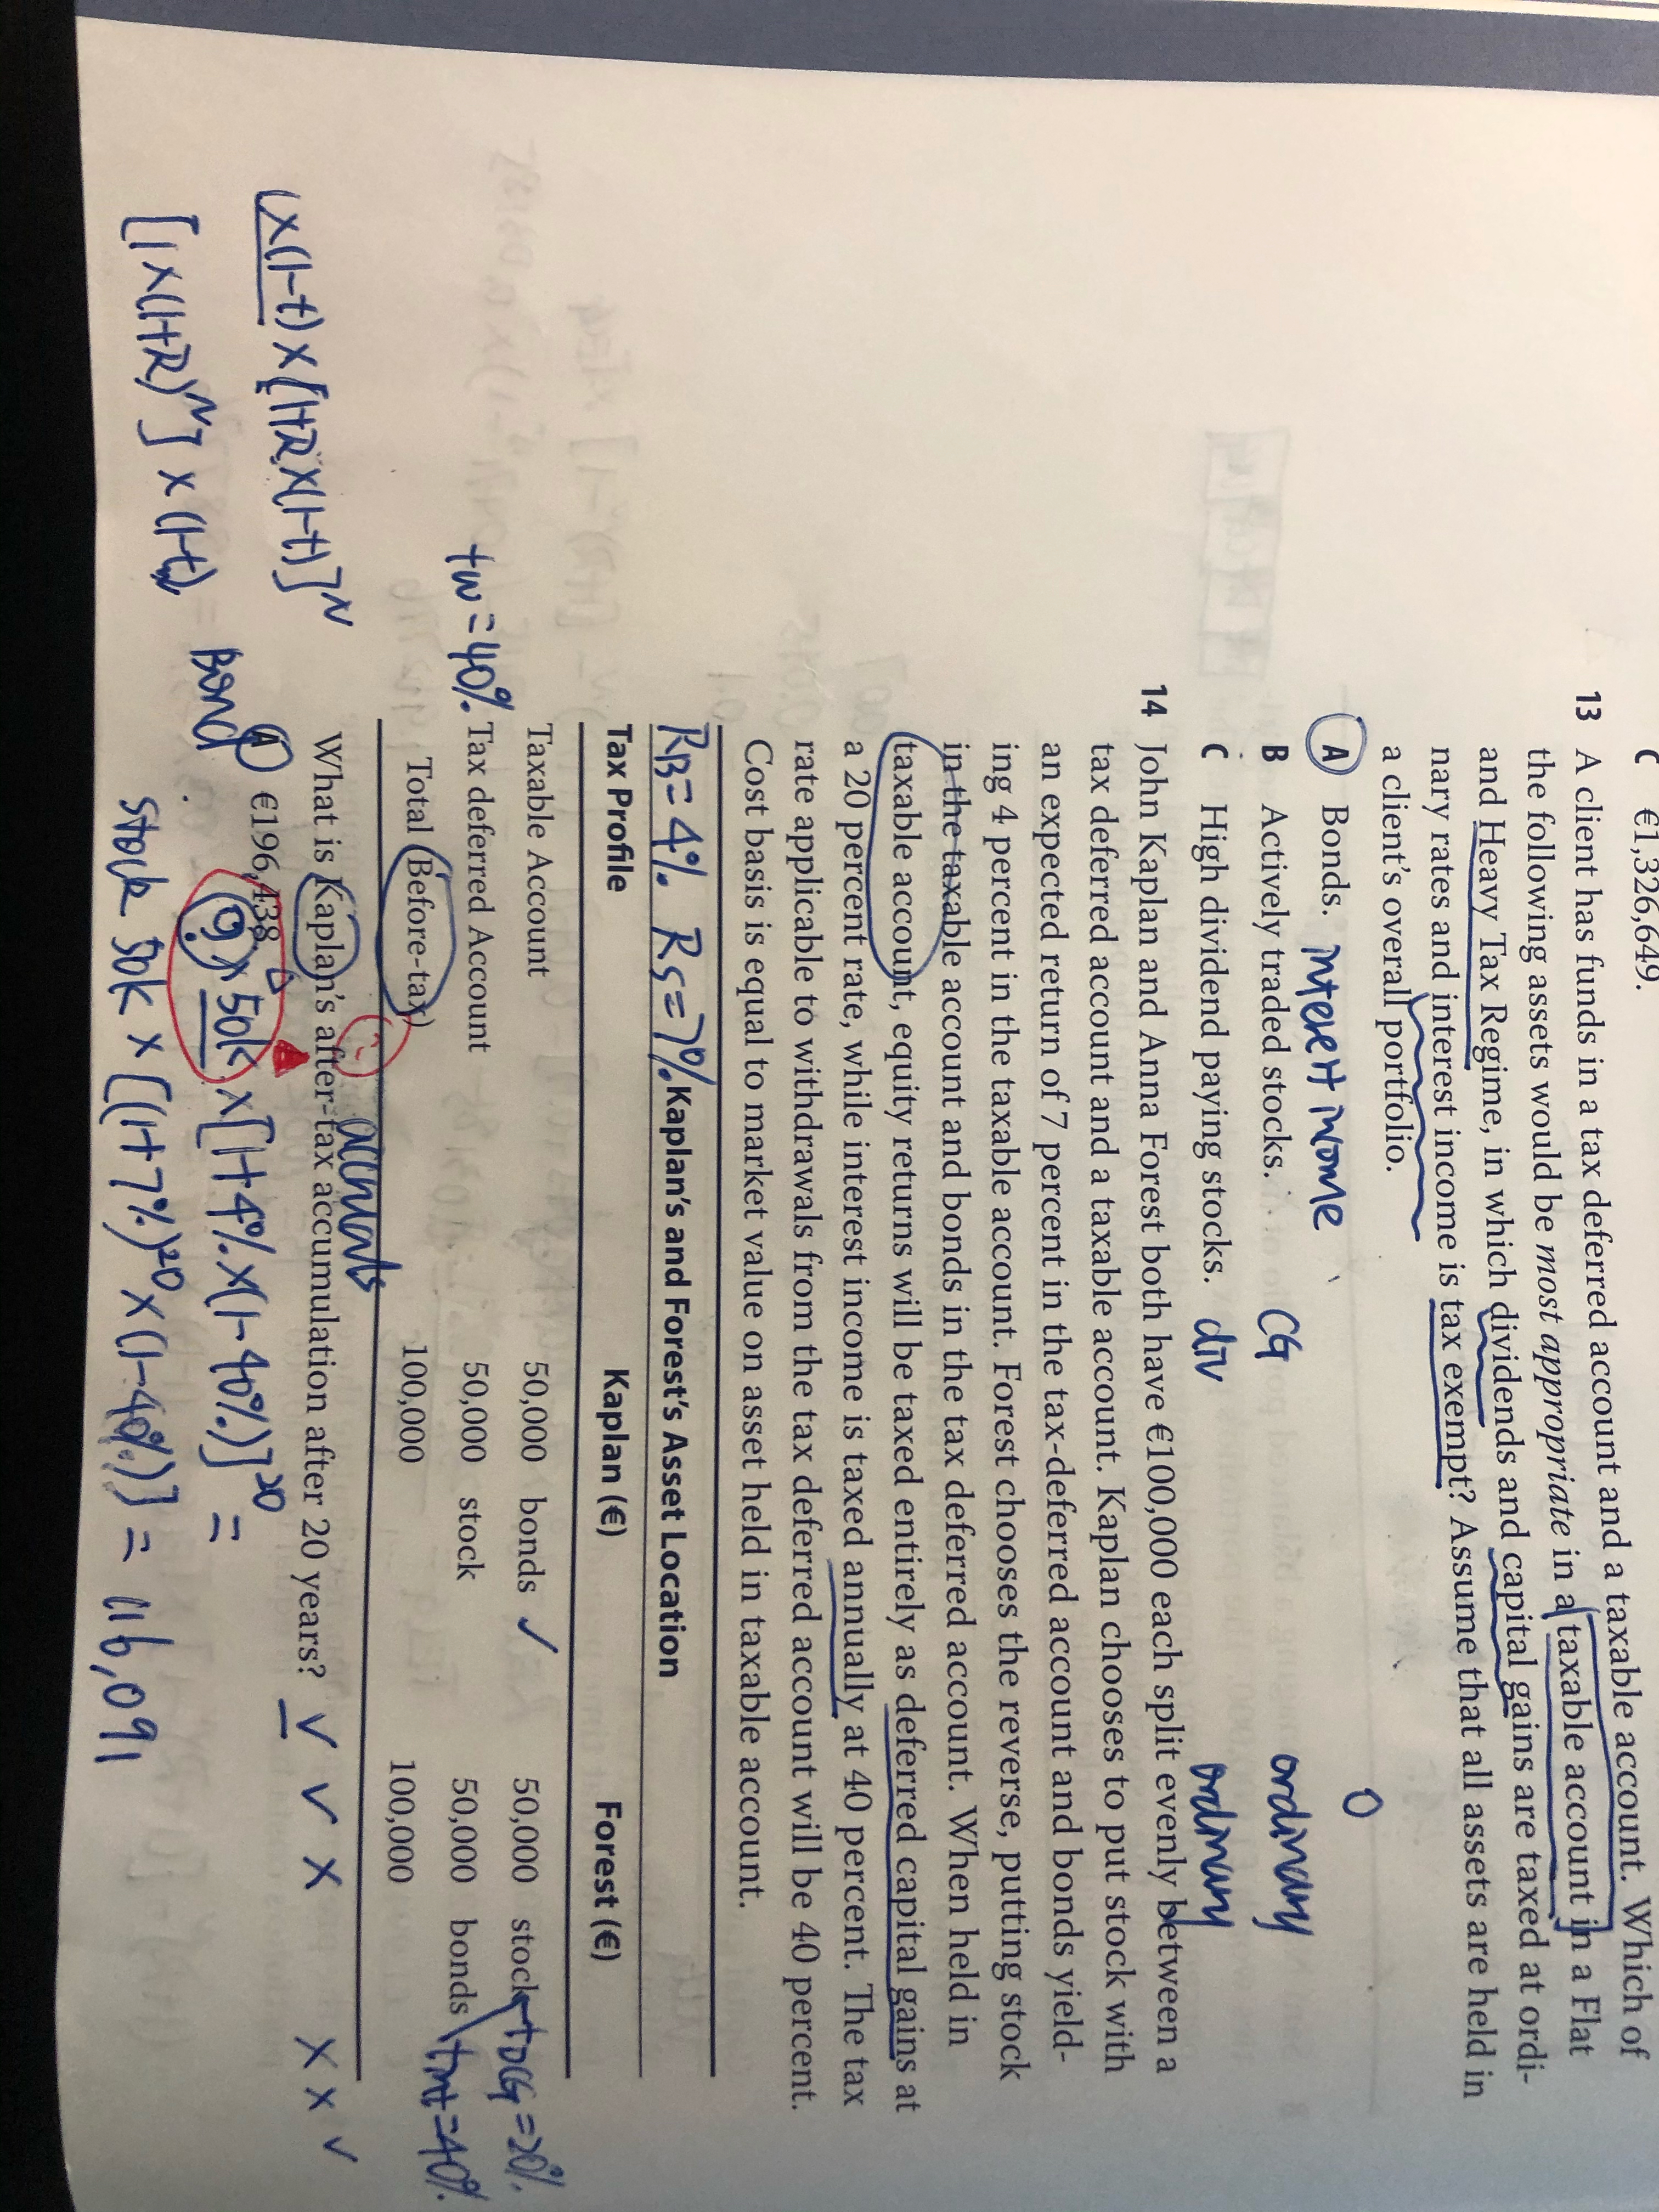 C €1,326,649.
13 A client has funds in a tax deferred account and a taxable account. Which of
the following assets would be most appropriate in a taxable account in a Flat
and Heavy Tax Regime, in which dividends and capital gains are taxed at ordi-
nary rates and interest income is tax exempt? Assume that all assets are held in
a client's overall portfolio.
A Bonds. interest income 0
B Actively traded stocks. CG ordinary
C High dividend paying stocks. div ordinary
14 John Kaplan and Anna Forest both have €100,000 each split evenly between a
tax deferred account and a taxable account. Kaplan chooses to put stock with
an expected return of 7 percent in the tax-deferred account and bonds yield-
ing 4 percent in the taxable account. Forest chooses the reverse, putting stock
in the taxable account and bonds in the tax deferred account. When held in
taxable account, equity returns will be taxed entirely as deferred capital gains at
a 20 percent rate, while interest income is taxed annually at 40 percent. The tax
rate applicable to withdrawals from the tax deferred account will be 40 percent.
Cost basis is equal to market value on asset held in taxable account.
RB=4% RS=7% Kaplan's and Forest's Asset Location
Tax Profile Kaplan (€) Forest (€)
Taxable Account 50,000 bonds ✓ 50,000 stock tDCG=20%
tw=40% Tax deferred Account 50,000 stock 50,000 bonds tint=40%
Total (Before-tax) 100,000 100,000
accruals
What is Kaplan's after-tax accumulation after 20 years? ✓ ✓ × × × ✓
(×(1-t)×[1+R×(1-t)]^N
A €196,438
Bond 50k ×[1+4%×(1-40%)]^20 =
[1×(1+R)^N]×(1-t)
stock 50k × [(1+7%)^20×(1-40%)] = 116,091